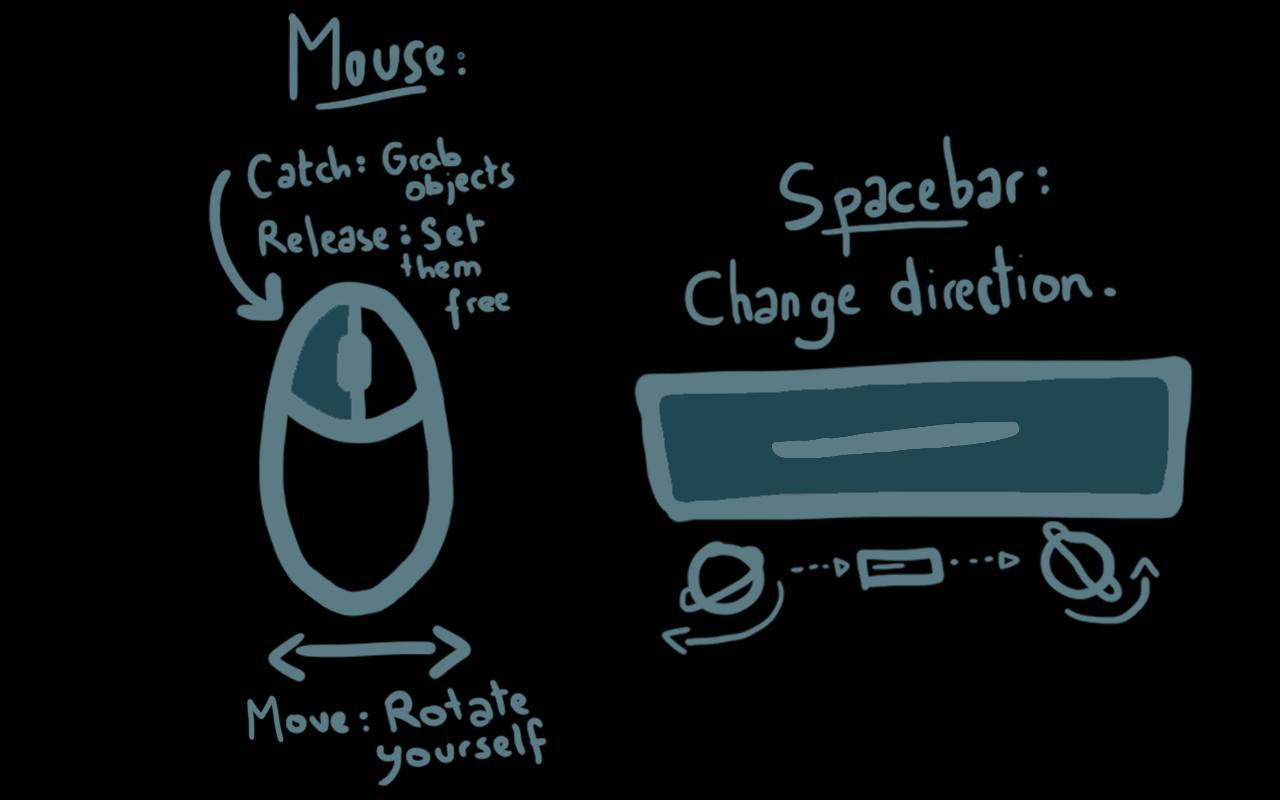 Mouse:
Catch: Grab
objects
Release: Set
them
free
Move: Rotate
yourself
Spacebar:
Change direction.